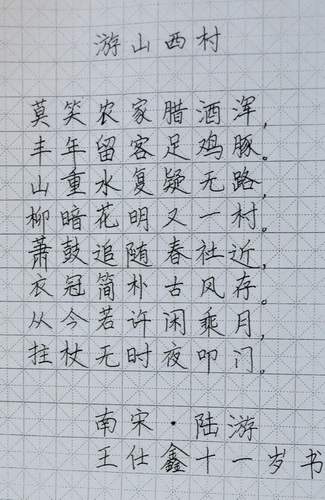 游山西村
莫笑农家腊酒浑，
丰年留客足鸡豚。
山重水复疑无路，
柳暗花明又一村。
萧鼓追随春社近，
衣冠简朴古风存。
从今若许闲乘月，
拄杖无时夜叩门。
南宋·陆游
王仕鑫十一岁书